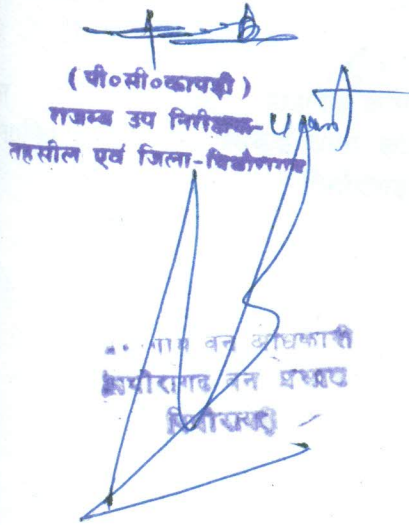 (पी०सी०कापड़ी)
राजस्व उप निरीक्षक-
तहसील एवं जिला-पिथौरागढ
वन अधिकारी
पिथौरागढ वन प्रभाग
पिथौरागढ़